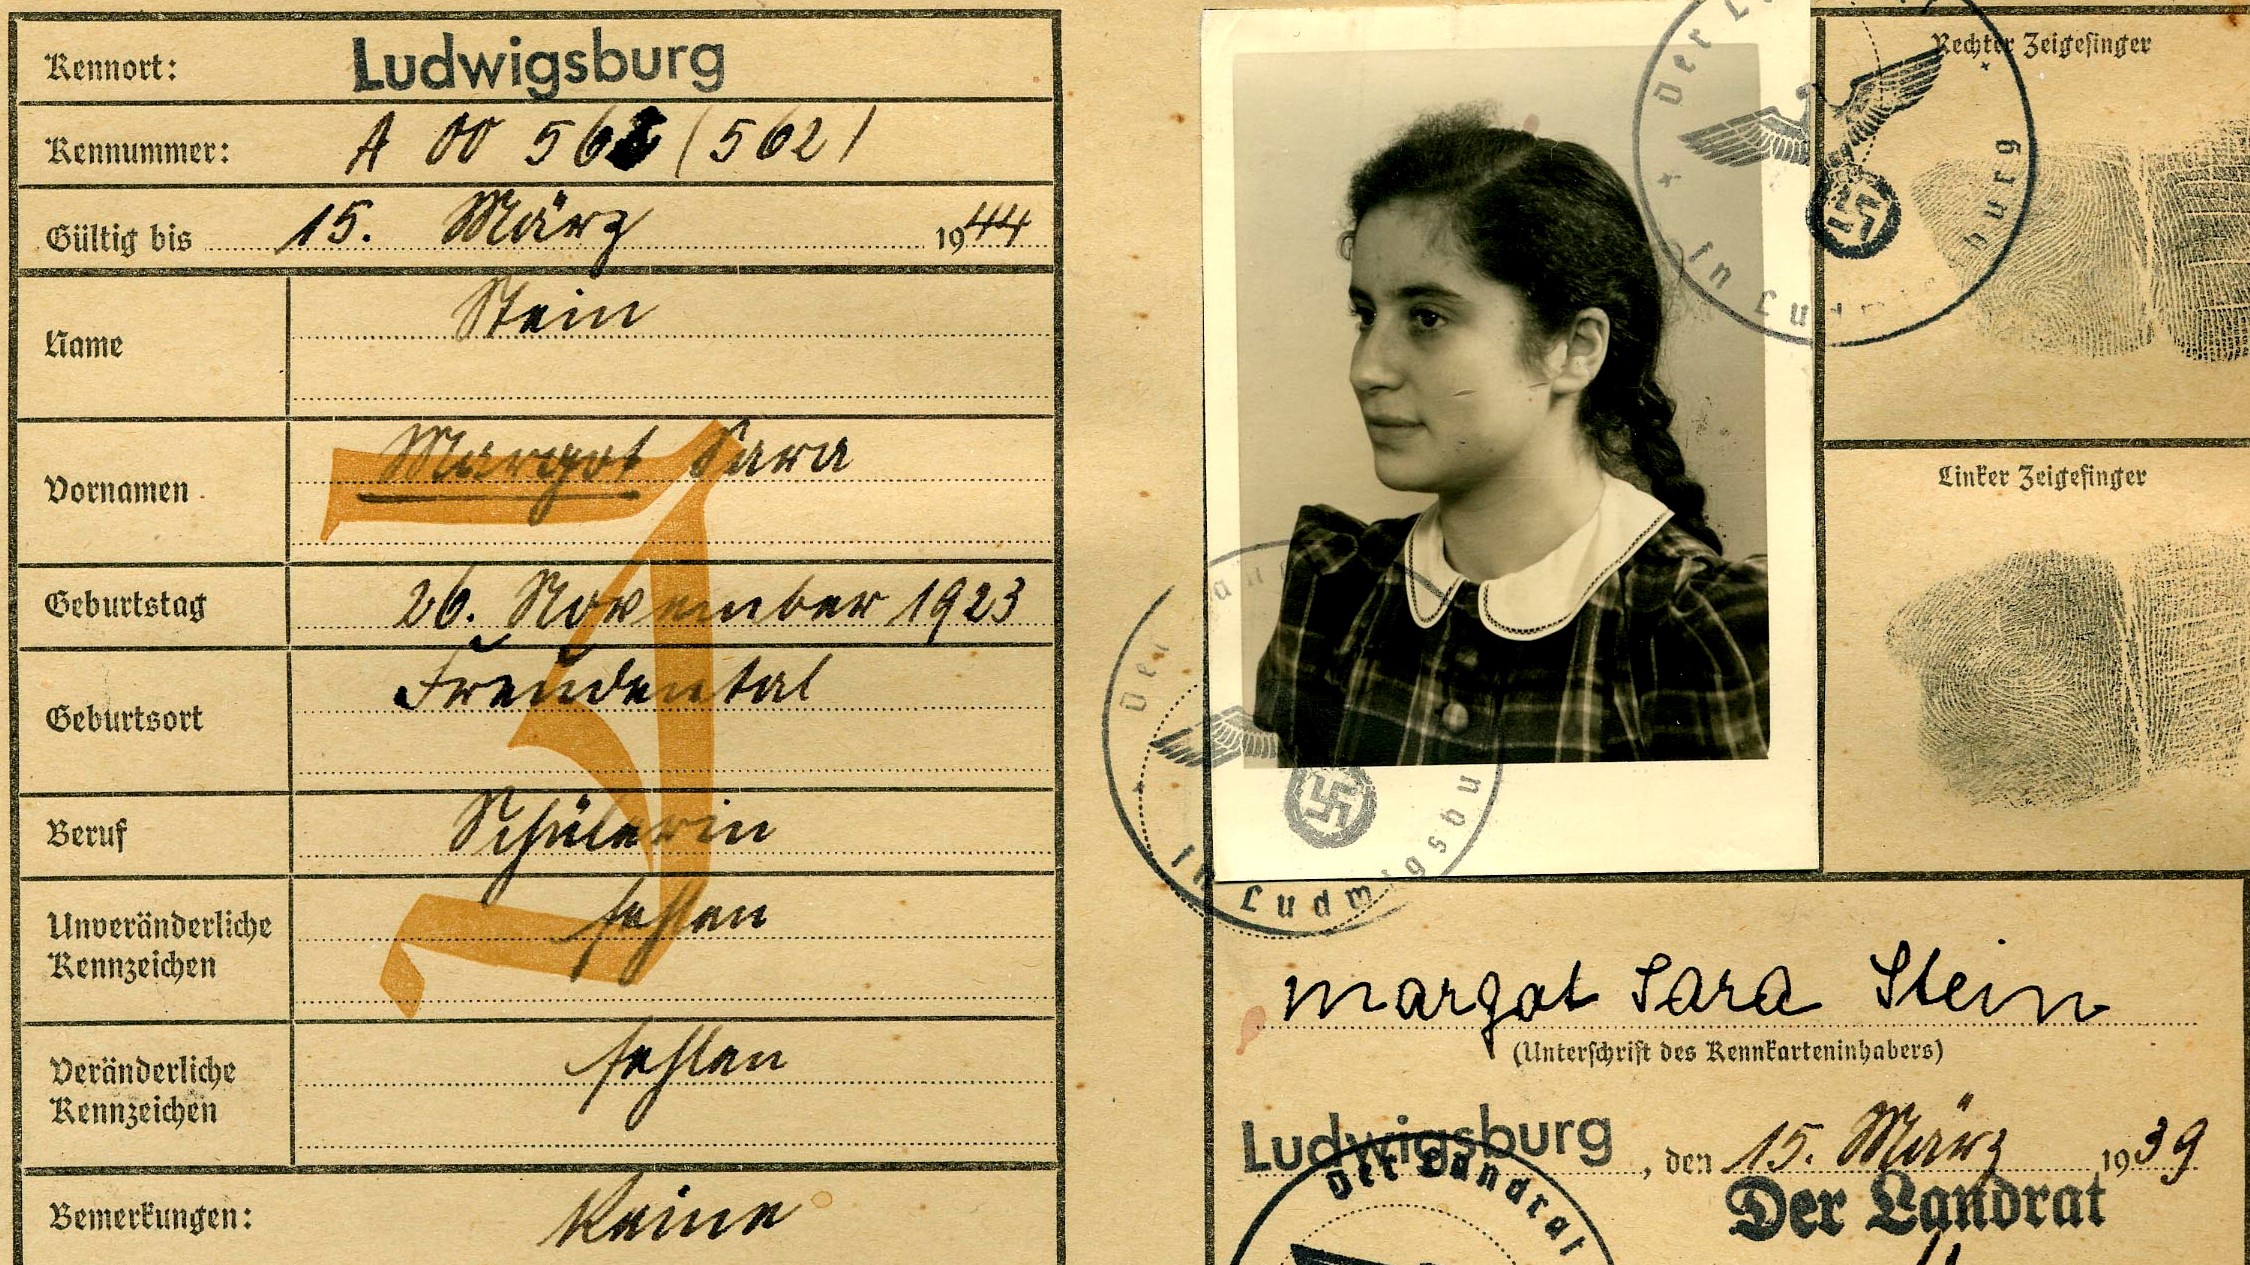 Kennort: Ludwigsburg
Kennummer: A 00 562 (562)
Gültig bis 15. März 1944
Name Stein
Vornamen Margot Sara
Geburtstag 26. November 1923
Geburtsort Freudental
Beruf Schülerin
Unveränderliche Kennzeichen fehlen
Veränderliche Kennzeichen fehlen
Bemerkungen: Keine
J
Rechter Zeigefinger
Linker Zeigefinger
Der
in Ludwigsburg
Der Land
in Ludwigsbu
Margot Sara Stein
(Unterschrift des Kennkarteninhabers)
Ludwigsburg, den 15. März 1939
Der Landrat
Der Landrat